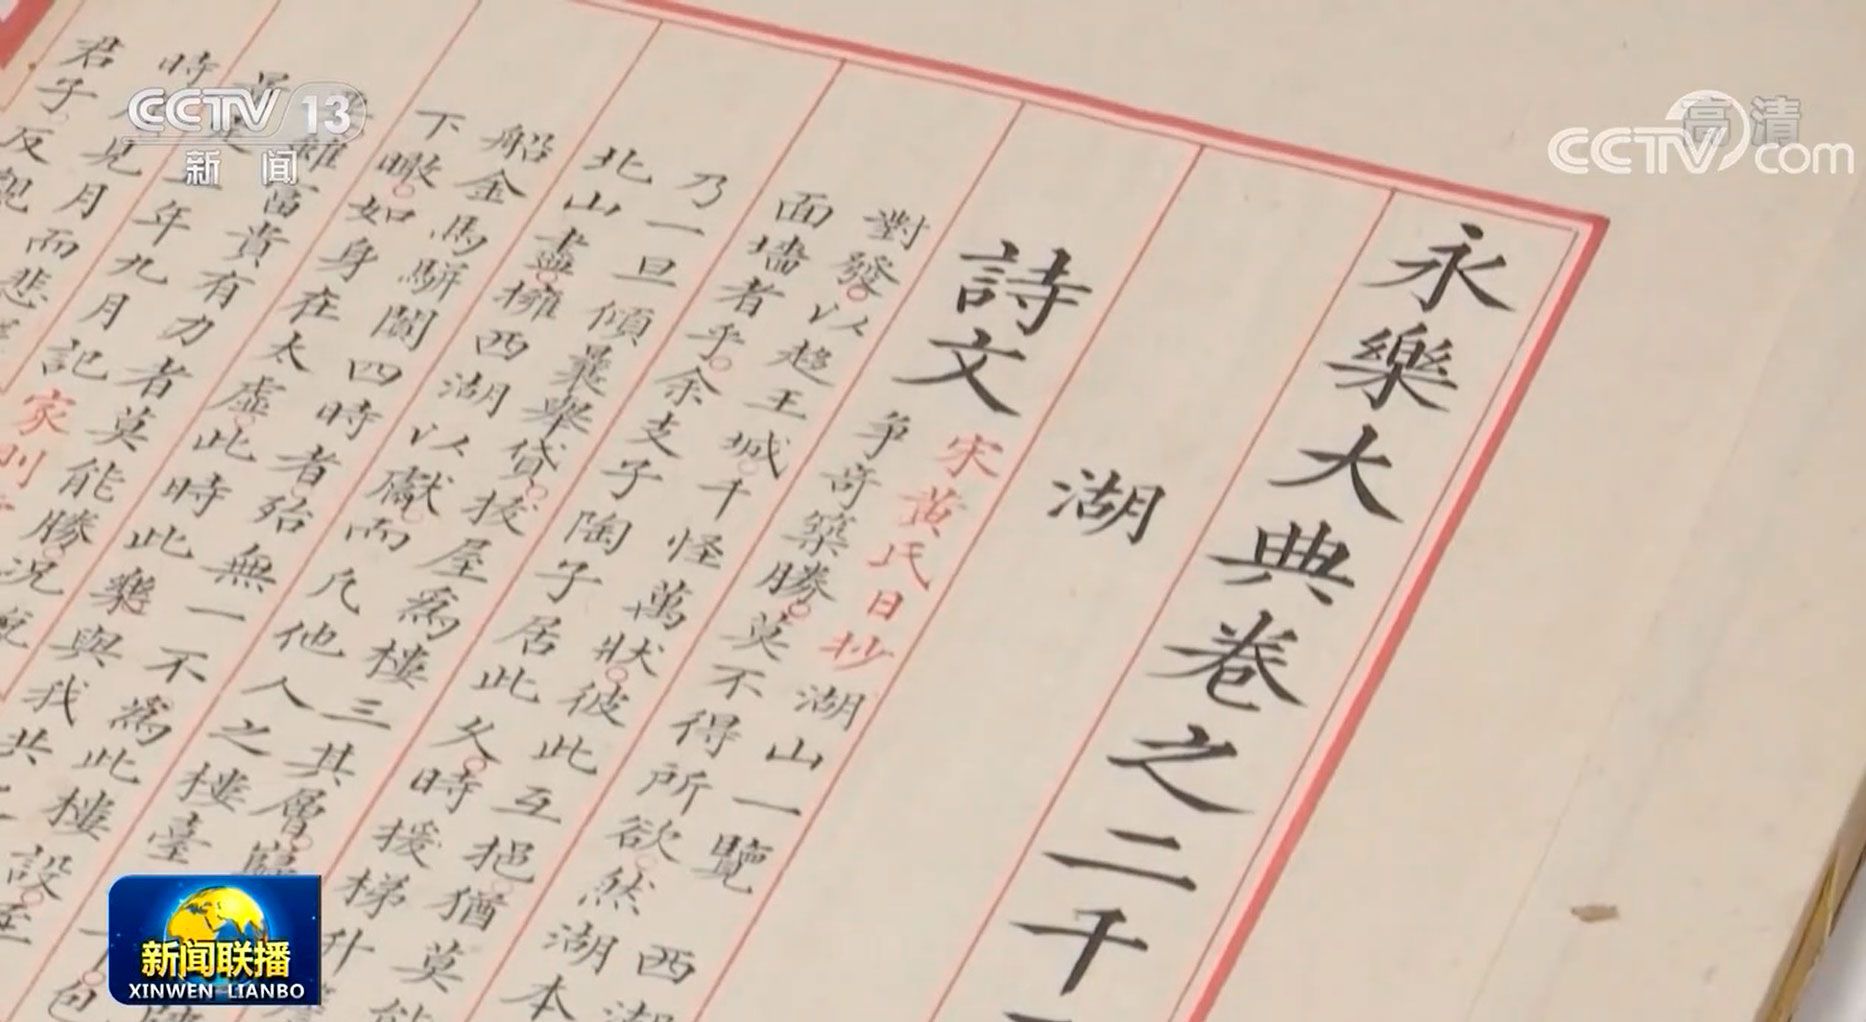 永樂大典卷之二千
湖
詩文
宋黄氏日抄湖山一覽
西湖
争奇築勝莫不得所欲然湖本
對發以趋王城千怪萬狀彼此互挹猶莫能
面墻者乎余支子陶子居此久時援梯升
乃一旦傾曩舉貸拔屋為樓三其層
北山盡擁西湖以獻而凡他人之樓臺
船金馬駢闐四時者殆無一不為此樓設
下瞰如身在太虛此時此樂與我共
雖富貴有力者莫能勝况
年九月記家
時
見月而悲
君子反
CCTV 13
新闻
高清
CCTV com
新闻联播
XINWEN LIANBO